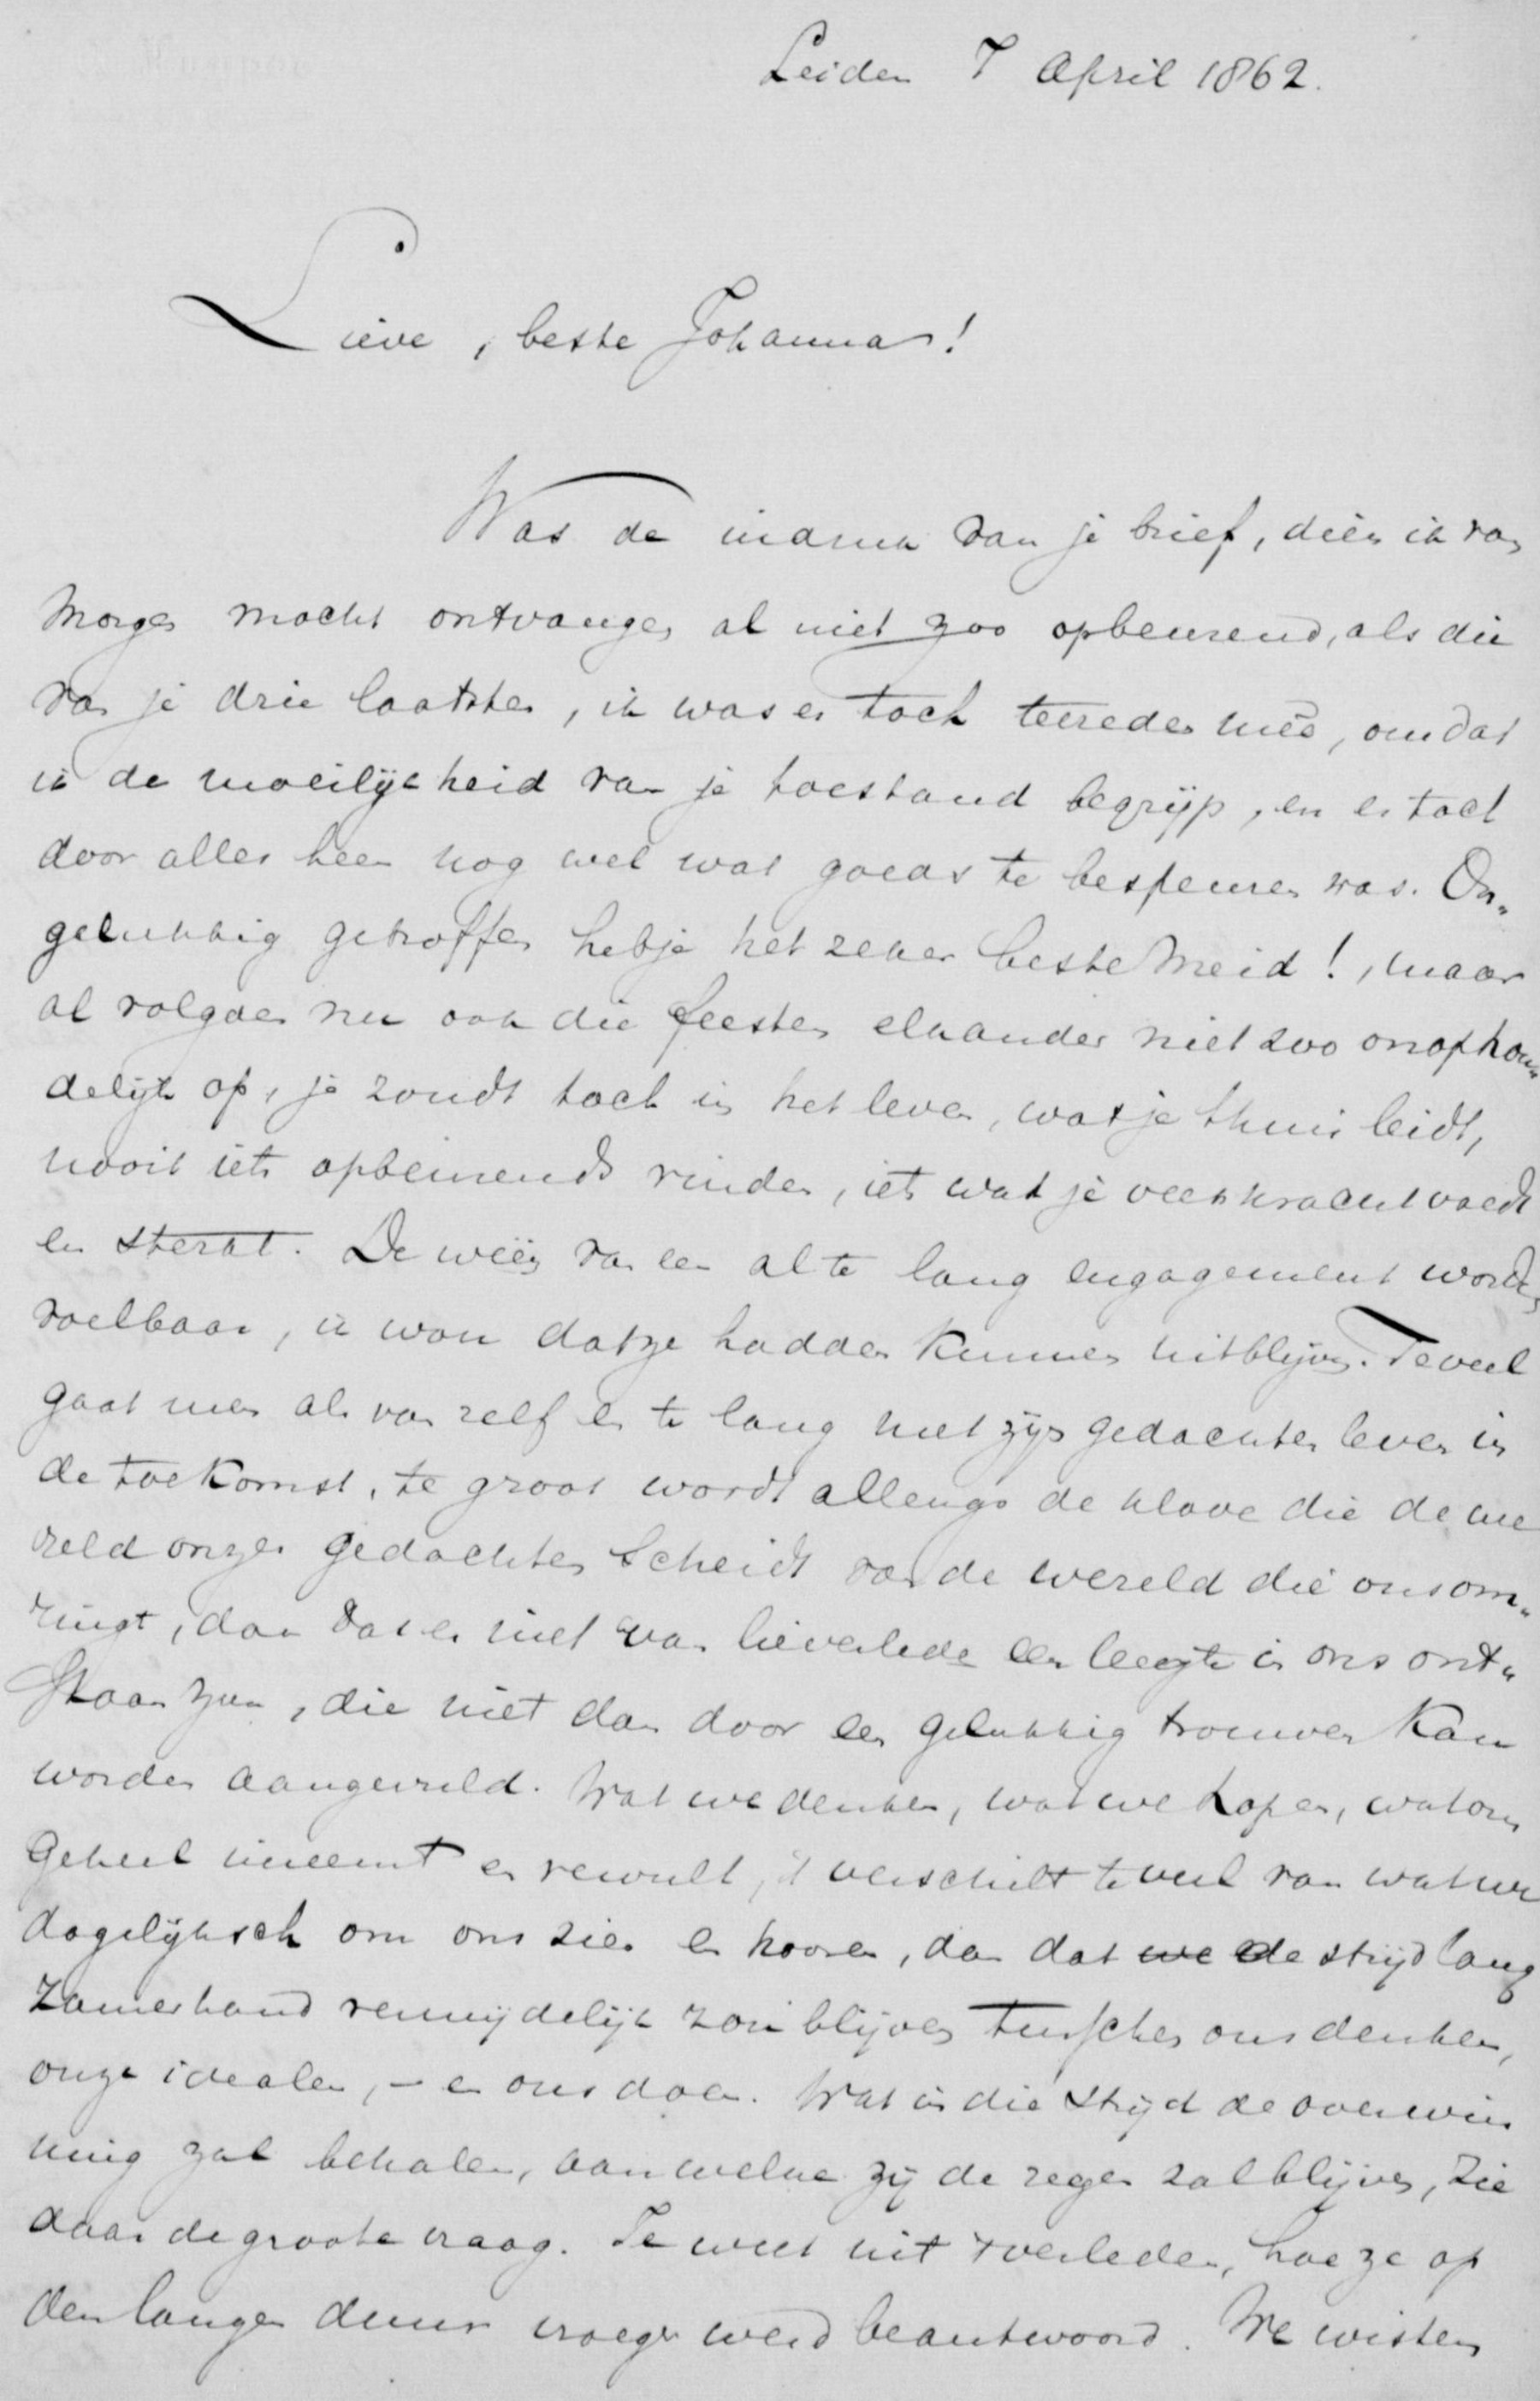 Leiden 7 April 1862.
Lieve, beste Johanna!
Was de indruk van je brief, dien ik van
morgen mocht ontvangen al niet zoo opbeurend, als die
van je drie laatsten, ik was er toch tevreden meê, omdat
ik de moeilijkheid van je toestand begrijp, en er toch
door alles heen nog wel wat goeds te bespeuren was. On„
gelukkig getroffen heb je het zeker beste meid!, maar
al volgden nu ook die feesten elkander niet zoo onophou„
delijk op, je zoudt toch in het leven, wat je thuis leidt,
nooit iets opbeurends vinden, iets wat je veerkracht voedt
en sterkt. De weeën van een al te lang engagement worden
voelbaar, ik wou dat ze hadden kunnen uitblijven. Te veel
gaat men als van zelf en te lang met zijn gedachten leven in
de toekomst, te groot wordt allengs de klove die de we
reld onzer gedachten scheidt van de wereld die ons om„
ringt, dan dat er niet van lieverlede een leegte in ons ont„
staan zou, die niet dan door een gelukkig trouwen kan
worden aangevuld. Wat we denken, wat we hopen, wat ons
geheel inneemt en vervult, 't verschilt te veel van wat we
dagelijksch om ons zien en hooren, dan dat we de strijd lang
zamerhand vermijdelijk zou blijven tusschen ons denken,
onze idealen, – en ons doen. Wat in die strijd de overwin
ning zal behalen, aan welke zij de zege zal blijven, zie
daar de groote vraag. Je weet uit 't verleden, hoe ze op
den langen duur vroeger werd beantwoord. We wisten